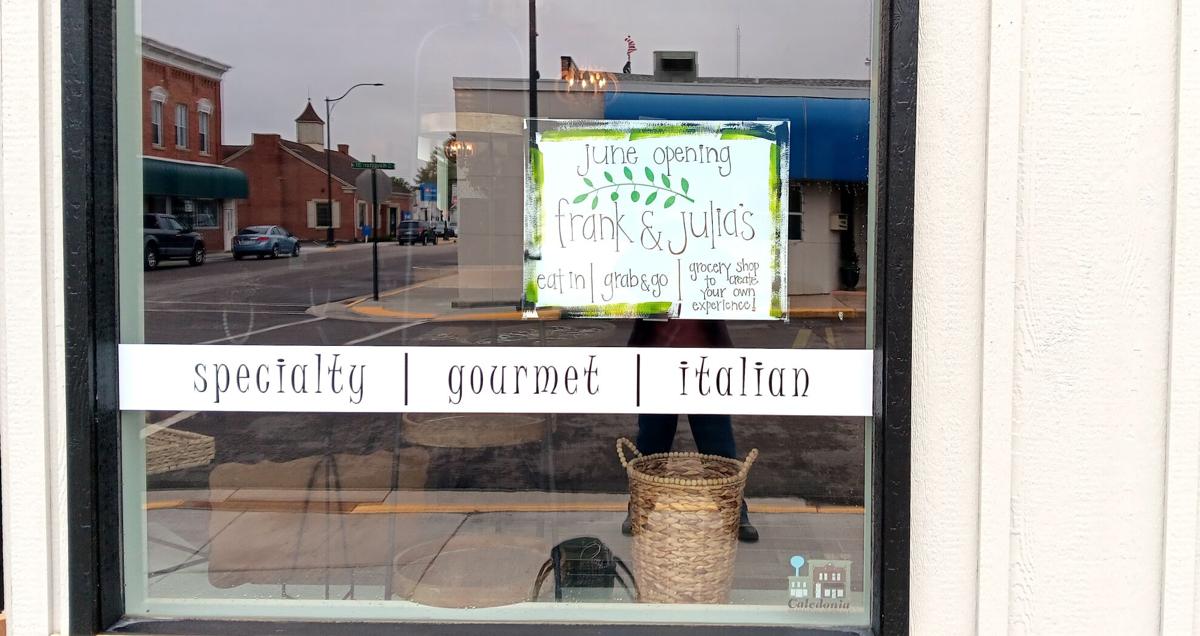 june opening
frank & julia's
eat in | grab & go | grocery shop
to create
your own
experience!
specialty | gourmet | italian
Caledonia